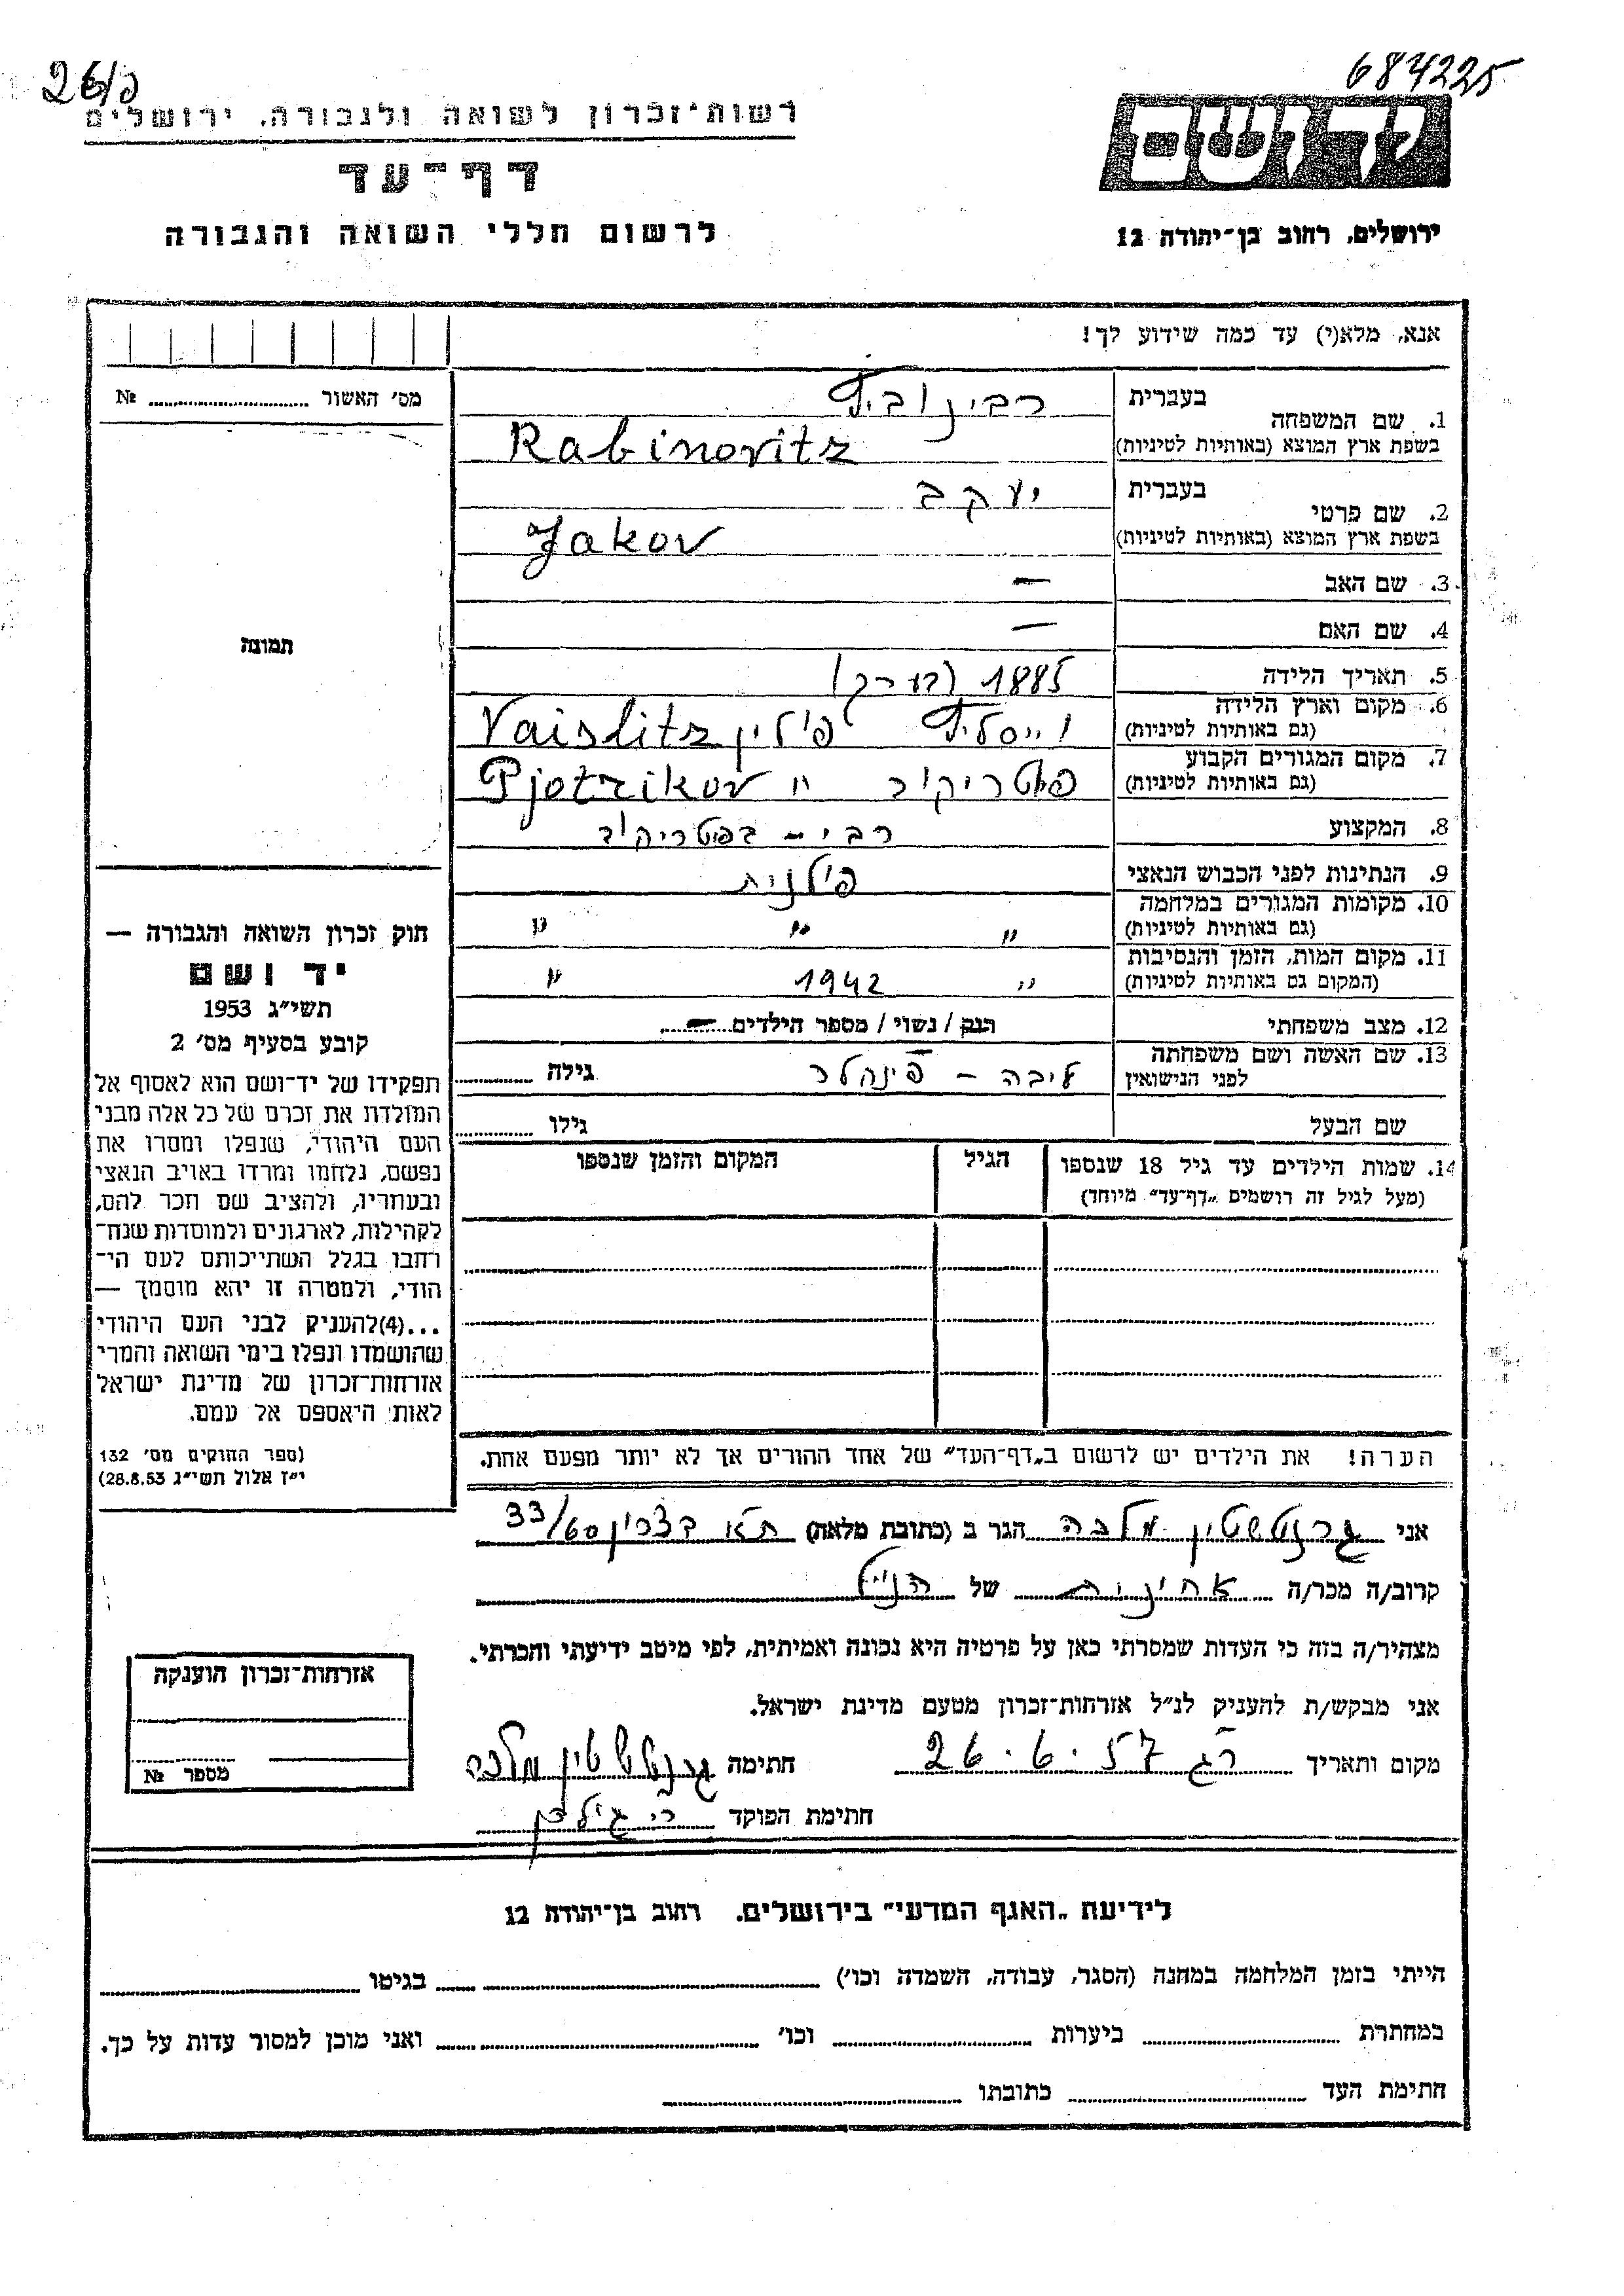 26/כ
684225
רשות־זכרון לשואה ולגבורה, ירושלים
דף־עד
לרשום חללי השואה והגבורה
יד ושם
ירושלים, רחוב בן־יהודה 12
אנא, מלא(י) עד כמה שידוע לך!
מס׳ האשור № 
תמונה
חוק זכרון השואה והגבורה —
יד ושם
תשי״ג 1953
קובע בסעיף מס׳ 2
תפקידו של יד־ושם הוא לאסוף אל
המולדת את זכרם של כל אלה מבני
העם היהודי, שנפלו ומסרו את
נפשם, נלחמו ומרדו באויב הנאצי
ובעוזריו, ולהציב שם וזכר להם,
לקהילות, לארגונים ולמוסדות שנח־
רבו בגלל השתייכותם לעם הי־
הודי, ולמטרה זו יהא מוסמך —
...(4)להעניק לבני העם היהודי
שהושמדו ונפלו בימי השואה והמרי
אזרחות־זכרון של מדינת ישראל
לאות היאספם אל עמם.
(ספר החוקים מס׳ 132
י״ז אלול תשי״ג 28.8.53)
1. שם המשפחה בעברית רבינוביץ
בשפת ארץ המוצא (באותיות לטיניות) Rabinovitz
2. שם פרטי בעברית יעקב
בשפת ארץ המוצא (באותיות לטיניות) Jakov
3. שם האב —
4. שם האם —
5. תאריך הלידה 1885 (בערך)
6. מקום וארץ הלידה
(גם באותיות לטיניות) וייסליץ פולין Vaislitz
7. מקום המגורים הקבוע
(גם באותיות לטיניות) פיוטריקוב " Pjotrikov
8. המקצוע רבי – בפיוטריקוב
9. הנתינות לפני הכבוש הנאצי פולנית
10. מקומות המגורים במלחמה
(גם באותיות לטיניות) " " "
11. מקום המות, הזמן והנסיבות
(המקום גם באותיות לטיניות) " 1942 "
12. מצב משפחתי רוק / נשוי / מספר הילדים —
13. שם האשה ושם משפחתה
לפני הנישואין ליבה – פינהלר גילה
שם הבעל גילו
14. שמות הילדים עד גיל 18 שנספו הגיל המקום והזמן שנספו
(מעל לגיל זה רושמים „דף־עד״ מיוחד)
הערה! את הילדים יש לרשום ב„דף־העד״ של אחד ההורים אך לא יותר מפעם אחת.
אני גרנטשטין מלכה הגר ב (כתובת מלאה) ת״א 33/60
קרוב/ה מכר/ה אחינית של הנ״ל
מצהיר/ה בזה כי העדות שמסרתי כאן על פרטיה היא נכונה ואמיתית, לפי מיטב ידיעתי והכרתי.
אני מבקש/ת להעניק לנ״ל אזרחות־זכרון מטעם מדינת ישראל.
מקום ותאריך רג 26.6.57 חתימה גרנטשטין מלכה
חתימת הפוקד
אזרחות־זכרון הוענקה
מספר №
לידיעת „האגף המדעי״ בירושלים, רחוב בן־יהודה 12
הייתי בזמן המלחמה במחנה (הסגר, עבודה, השמדה וכו׳) בגיטו
במחתרת ביערות וכו׳ ואני מוכן למסור עדות על כך.
חתימת העד כתובתו